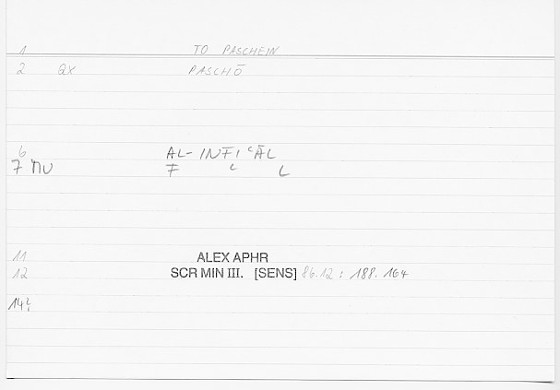 1 TO PASCHEIN
2 QX PASCHŌ
6 AL-INFIʿĀL
7 F ʿ L
11 ALEX APHR
12 SCR MIN III. [SENS] 86.12 : 188.164
14